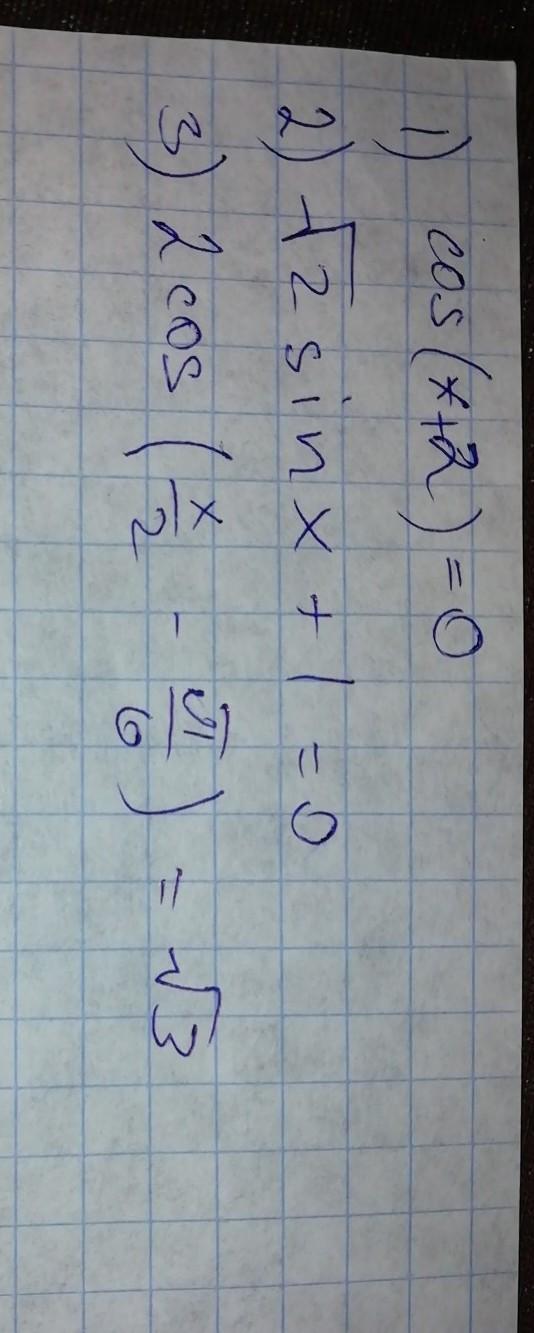 1) cos(x+2)=0
2) √2 sin x + 1 = 0
3) 2 cos (x/2 - π/6) = √3